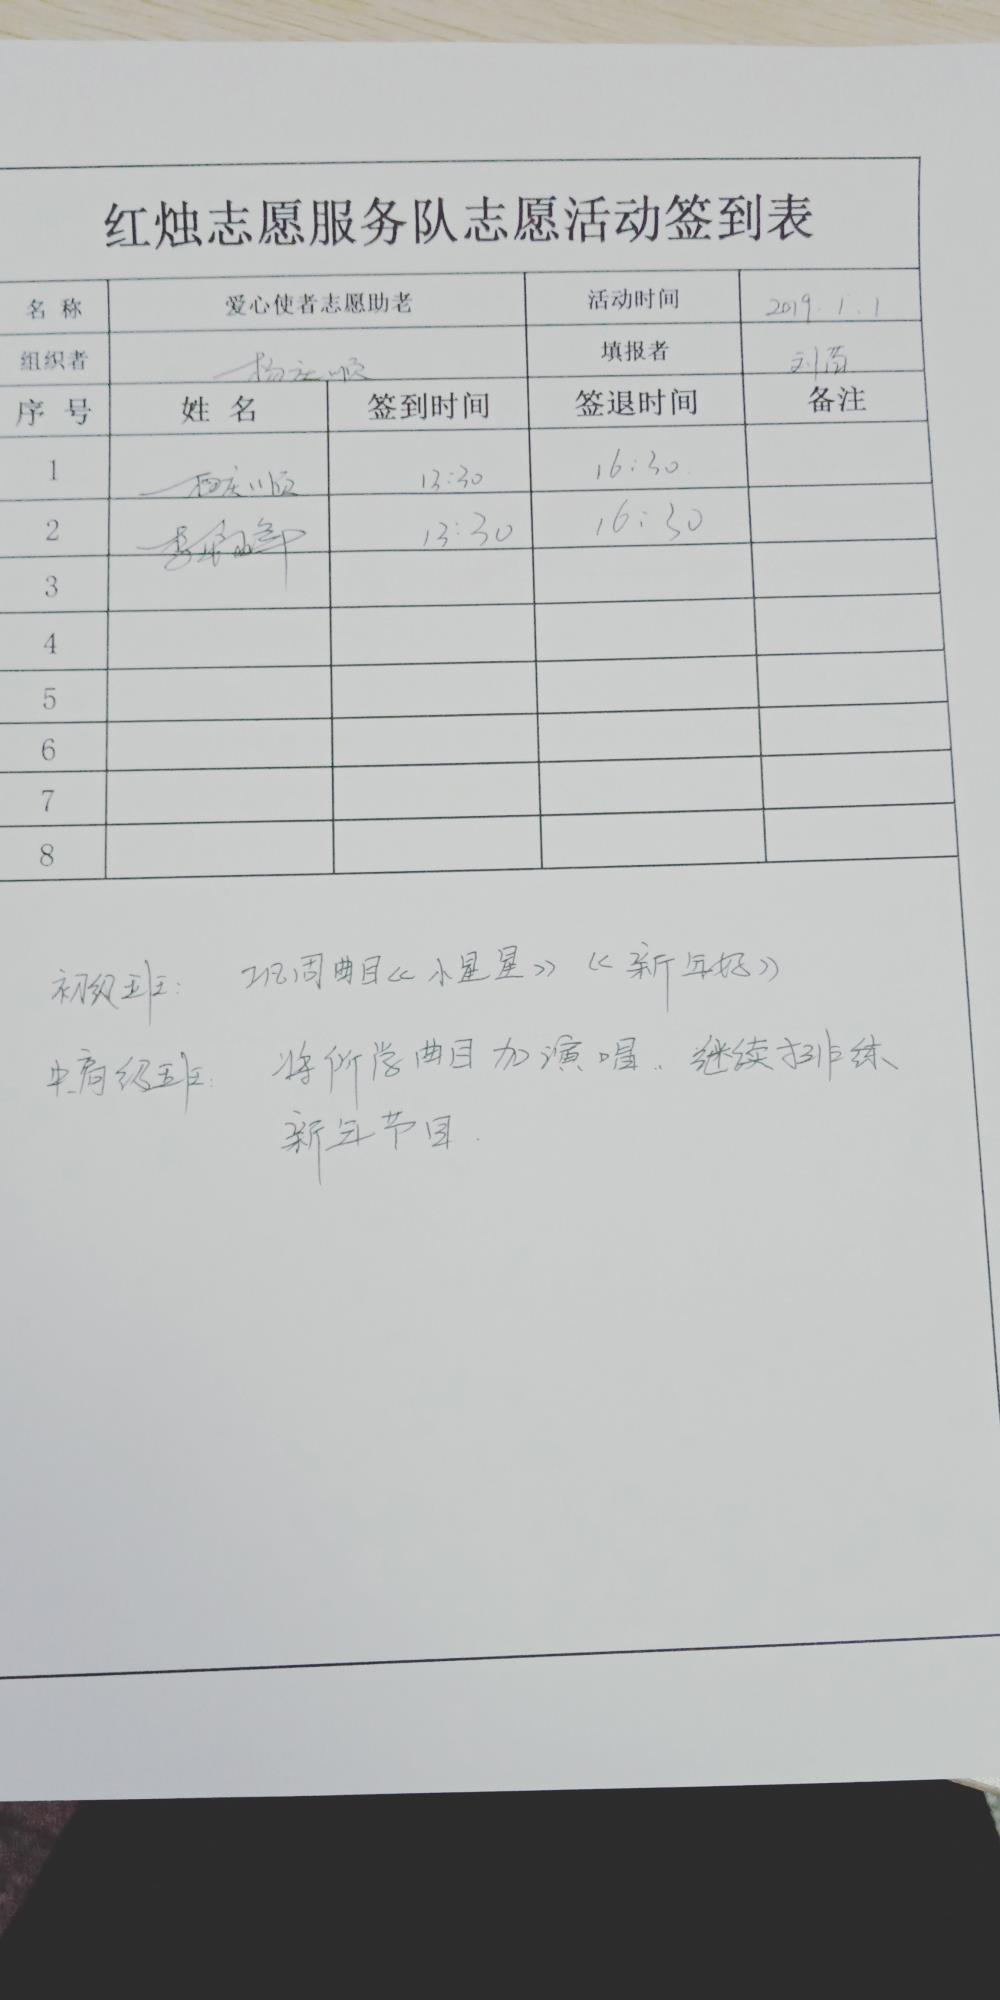 红烛志愿服务队志愿活动签到表
名称 爱心使者志愿助老 活动时间 2019.1.1
组织者 杨庆顺 填报者 刘茵
序号 姓名 签到时间 签退时间 备注
1 杨庆顺 13:30 16:30
2 13:30 16:30
3
4
5
6
7
8
初级班: 巩固曲目《小星星》《新年好》
中高级班: 将所学曲目加演唱.. 继续排练
新年节目.